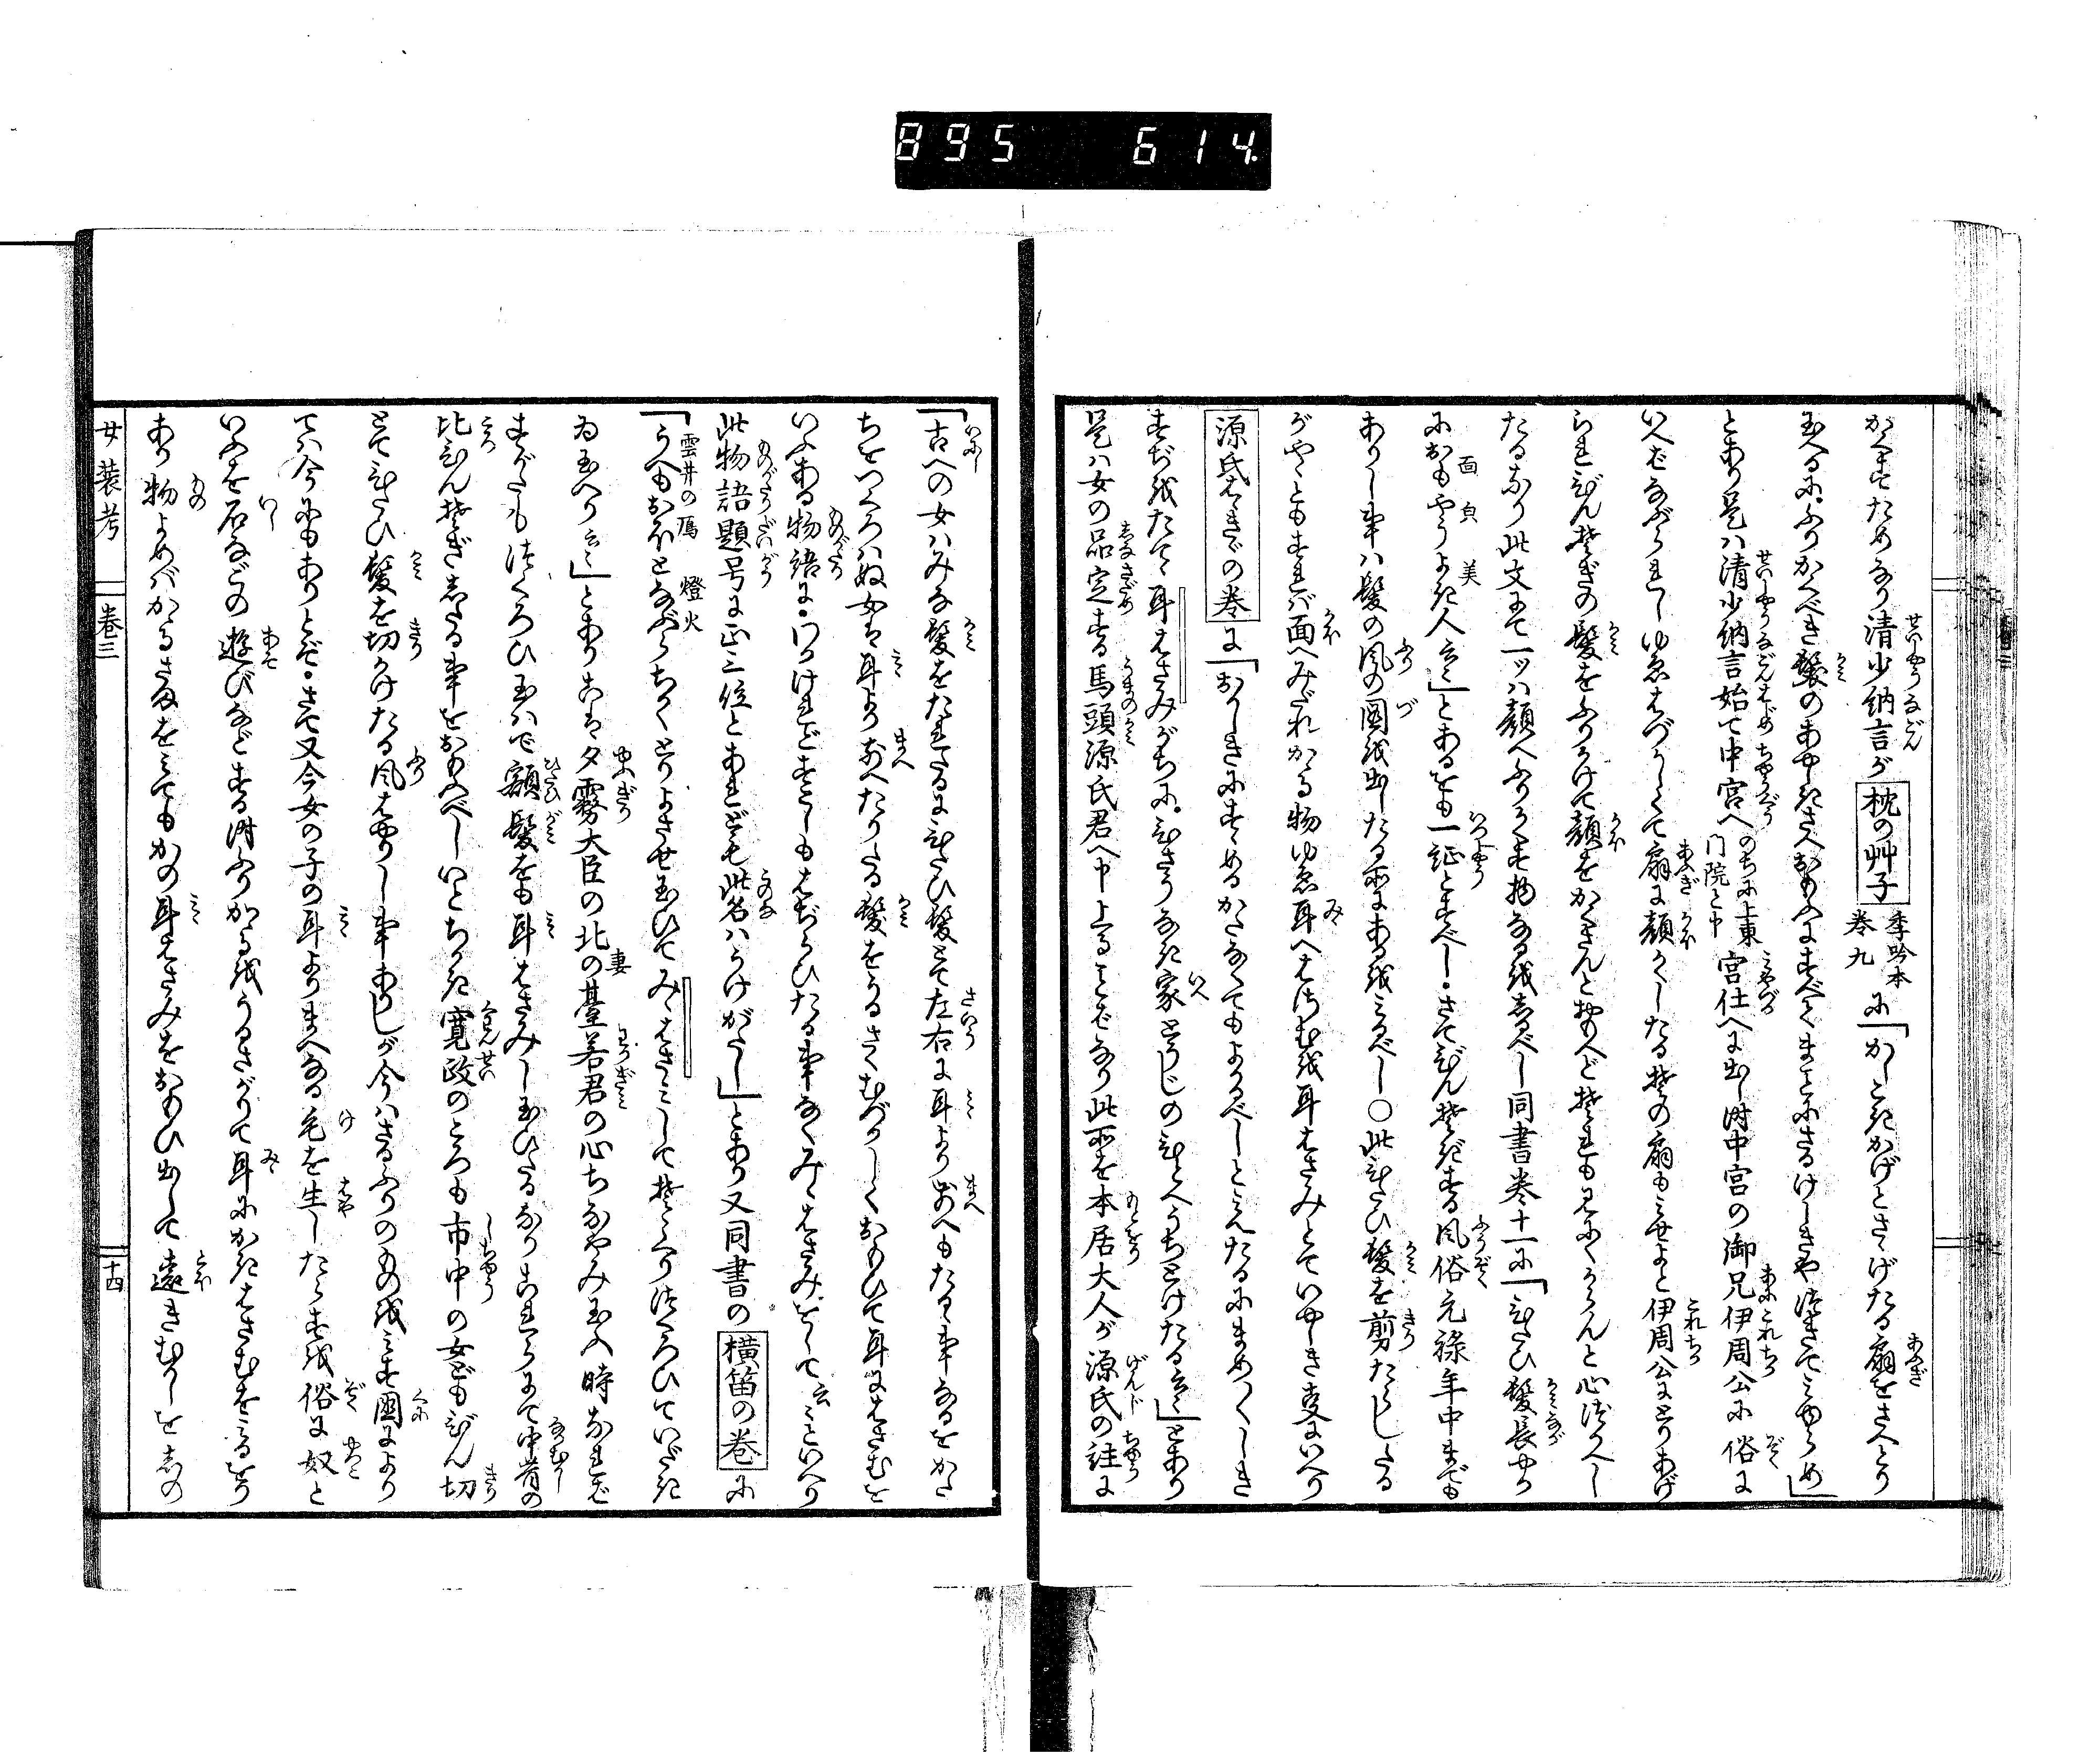 895 614
かくすためなり清少納言が枕の艸子季吟本巻九に「かしこきかげとさゝげたる扇をさへとり
玉へるに。ふりかくべき髪のあやしささへおもふにすべてまことにさるけしきやつきてこそみゆらめ」
とあり是ハ清少納言始て中宮へのちに上東門院と申宮仕へに出し時中宮の御兄伊周公に俗に
いへばなぶられしゆゑはづかしくて扇に顔かくしたる其の扇もみせよと伊周公にとりあげ
られびんそぎの髪をふりかけて顔をかくさんとおもへどそれも見にくからんと心づかへし
たるなり此文にて一ッハ顔へふりかくす物なるをしるべし同書巻十一に「ひたひ髪長やか
におもやうよき人云々」とあるをも一証とすべし。さてびんそぎする風俗元禄年中までも
ありし事ハ髪の風の図を出したる所にあるをみるべし〇此ひたひ髪を剪たらしたる
がやゝともすれバ面へみだれかゝる物ゆゑ耳へはさむを耳はさみとていやしき事にいへり
源氏はゝきゞの巻に「をかしきにすゝめるかたなくてもよかるべしとみえたるにまめ〳〵しき
すぢをたてゝ耳はさみがちに。びさうなき家とうじのひとへにうちとけたる云々」とあり
是ハ女の品定する馬頭源氏君へ申上ることばなり此所を本居大人が源氏の註に
「古への女ハみな髪をたれたるにひたひ髪とて左右に耳より前へもたるゝ事なるをかた
ちをつくろハぬ女は耳より前へたりたる髪をうるさくむづかしくおもひて耳にはさむを
いふある物語に。わらけれどすこしもはぢらひたる事なくみゝはさみをして云々といへり
此物語題号に正三位とあれども此名ハうけがたし」とあり又同書の横笛の巻に
「うへもおほとなぶらちかくとりよせさせ玉ひてみゝはさみして そゝくりつくろひていだき
雲井の鴈 燈火
ゐ玉へり云々」とありこは夕霧大臣の北の䑓若君の心ちなやみ玉ふ時なれば
すがたもつくろひ玉ハで額髪をも耳はさみし玉ひたるなりこれらにて中昔の
比びんそぎしたる事をおもふべしいとちかき寛政のころも市中の女どもびん切
とてひたひ髪を切かけたる風はやりし事ありしが今ハさるふりのものをみず図により
てハ今にもありとぞ。さて又今女の子の耳よりまへなる毛を生したらすを俗に奴と
いふを石なごの遊びなどする時ふりかゝるをうるさがりて耳にかきはさむをみるをり
あり物よめバかゝるさまをみてもかの耳はさみをおもひ出して遠きむかしをしの
女装考 巻三 十四